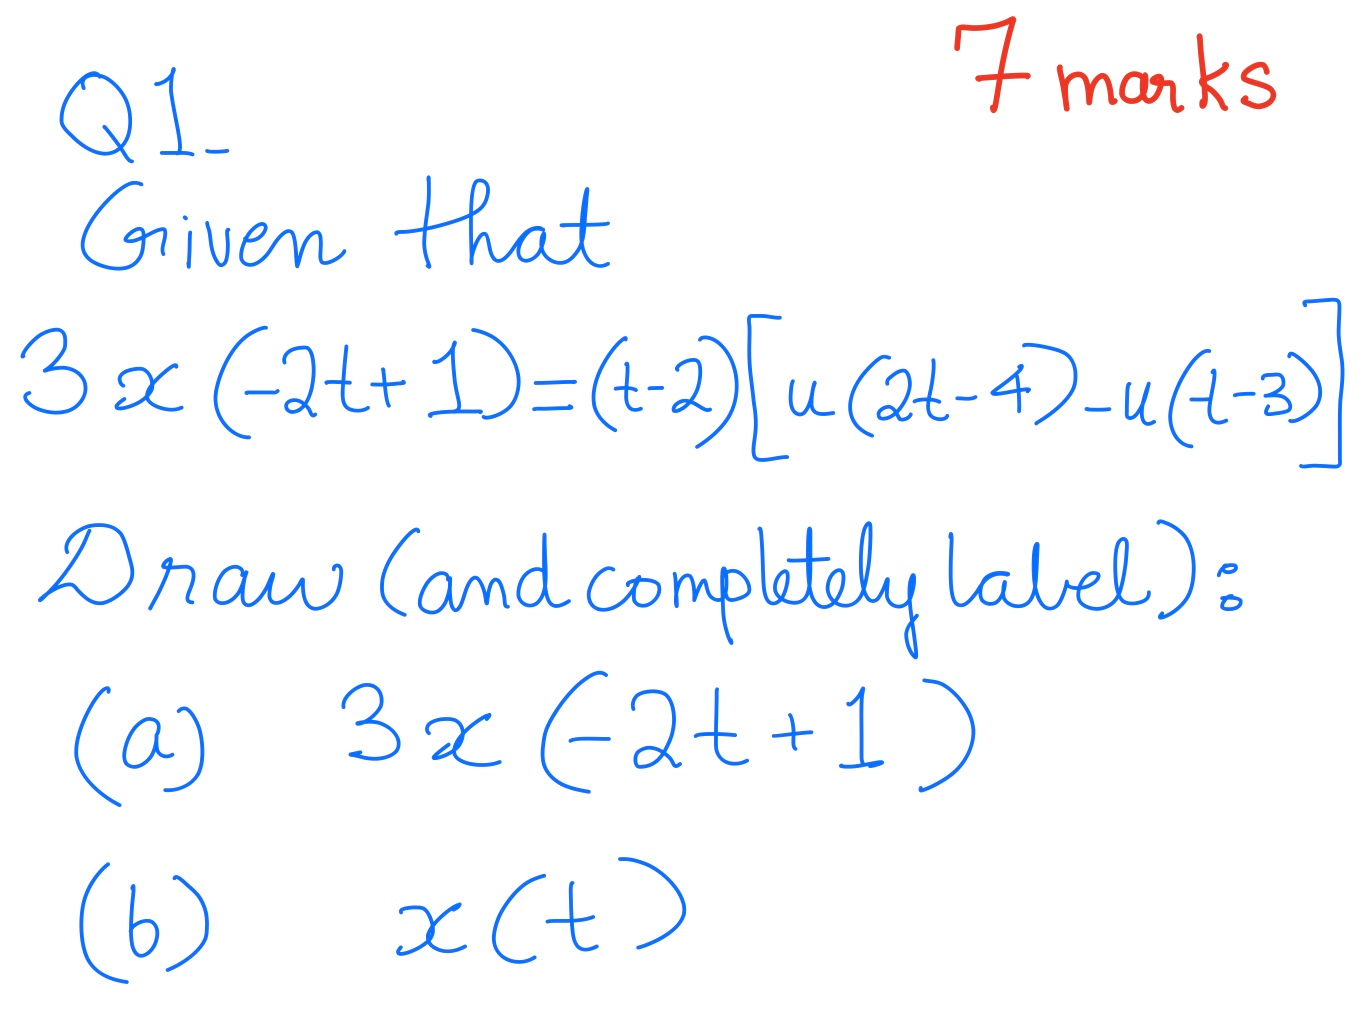 7 marks
Q1-
Given that
3x(-2t+1)=(t-2)[u(2t-4)-u(t-3)]
Draw (and completely label):
(a) 3x(-2t+1)
(b) x(t)